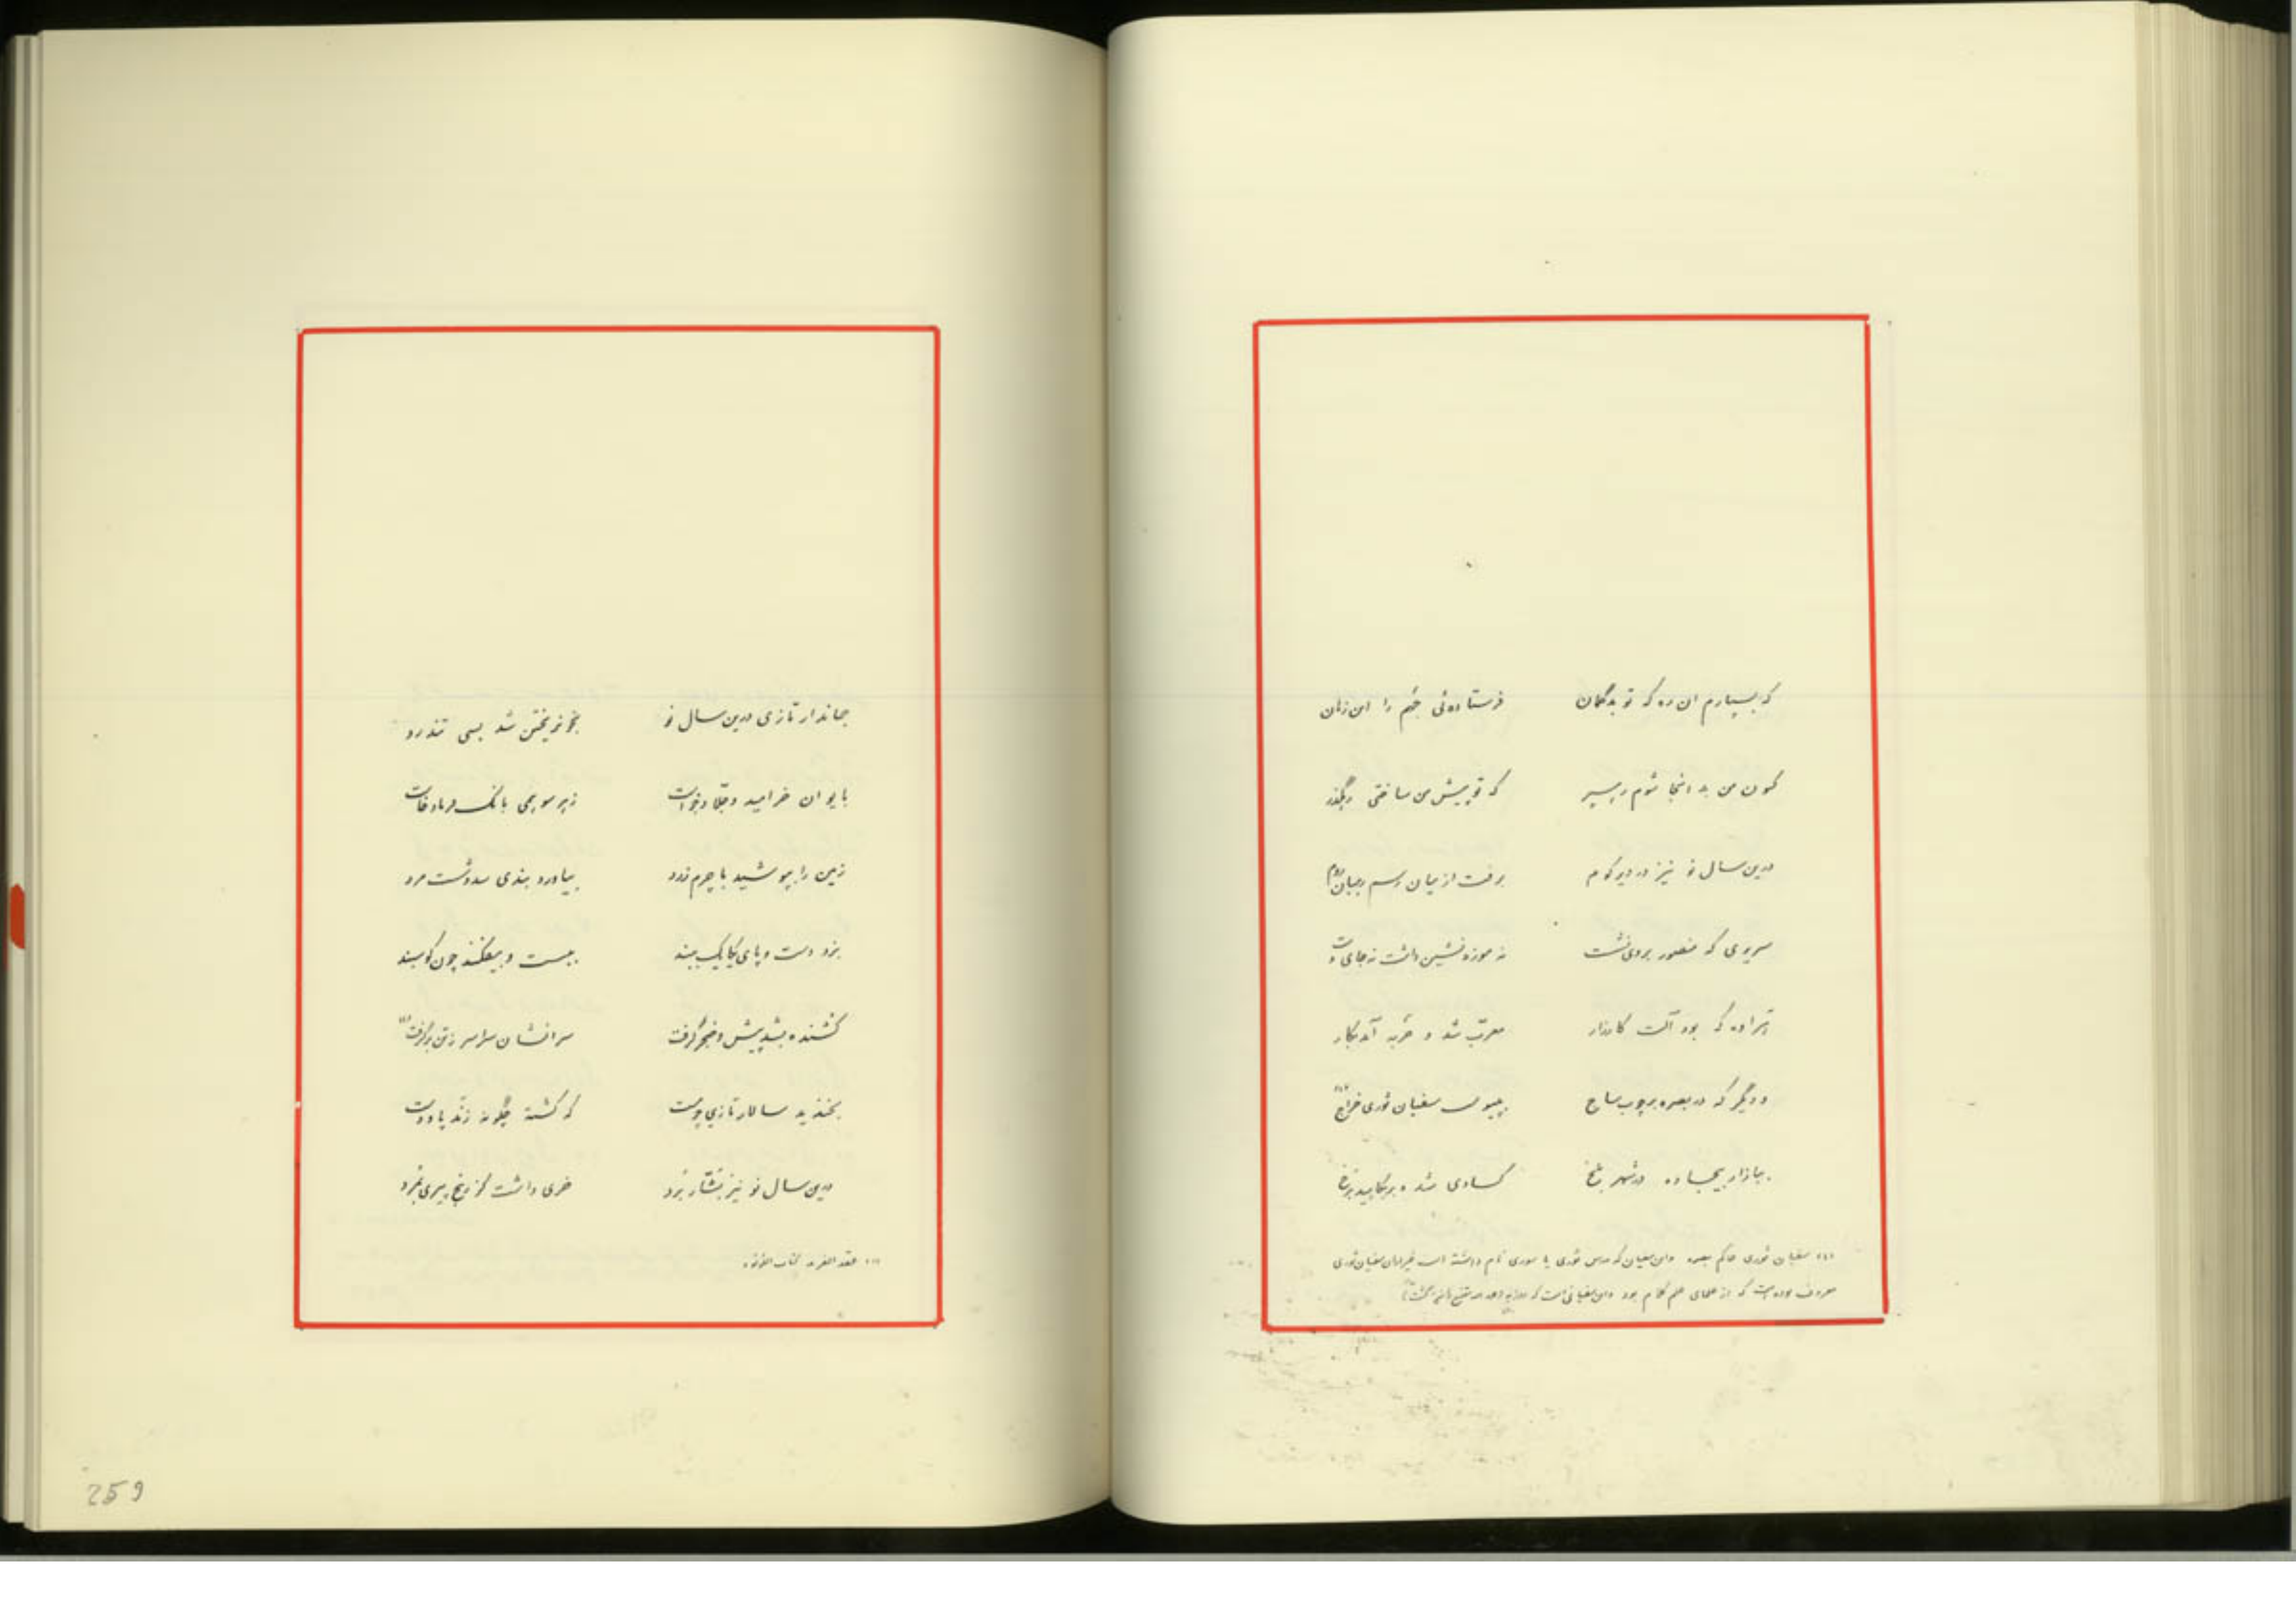 که بسپارم ان ره که تو بدگمان فرستاده‌ئی جم را این زمان
کنون من بد انجا شوم رهسپر که تو پیش من ساختی رهگذر
درین سال نو نیز در دیر کوم برفت از میان رسم رهبان روم
سریری که منصور بر وی نشست نه موزه نشین داشت نه جای دست
تبراده که بود آلت کارزار معرّب شد و حربه آمد بکار
و دیگر که در بصره بر چوب ساج سفیان ثوری خراج (۱)
ببازار بیجاده در شهر بلخ کسادی شد و
(۱) سفیان ثوری حاکم بصره و این سفیان که ثوری یا سوری نام داشته است غیر از ان سفیان ثوری
معروف بوده است که از علمای علم کلام بود و این سفیانی است که
جهاندار تازی درین سال نو بخونریختن شد بسی تندرو
بایوان خرامید و جلّاد خواست ز هر سو همی بانگ فریاد خاست
زمین را بپوشید با چرم زرد بیاورد بندی سد و شست مرد
بزد دست و پای یکایک ببند ببست و بیفکند چون گوسپند
کشنده بشد پیش و خنجر گرفت سرانشان سراسر ز تن برگرفت (۱)
بخندید سالار تازی پرست که کشته چگونه زند پا و دست
درین سال نو نیز بشّار برد خری داشت کز رنج پیری بمرد
(۱) عقد الفرید کتاب
259